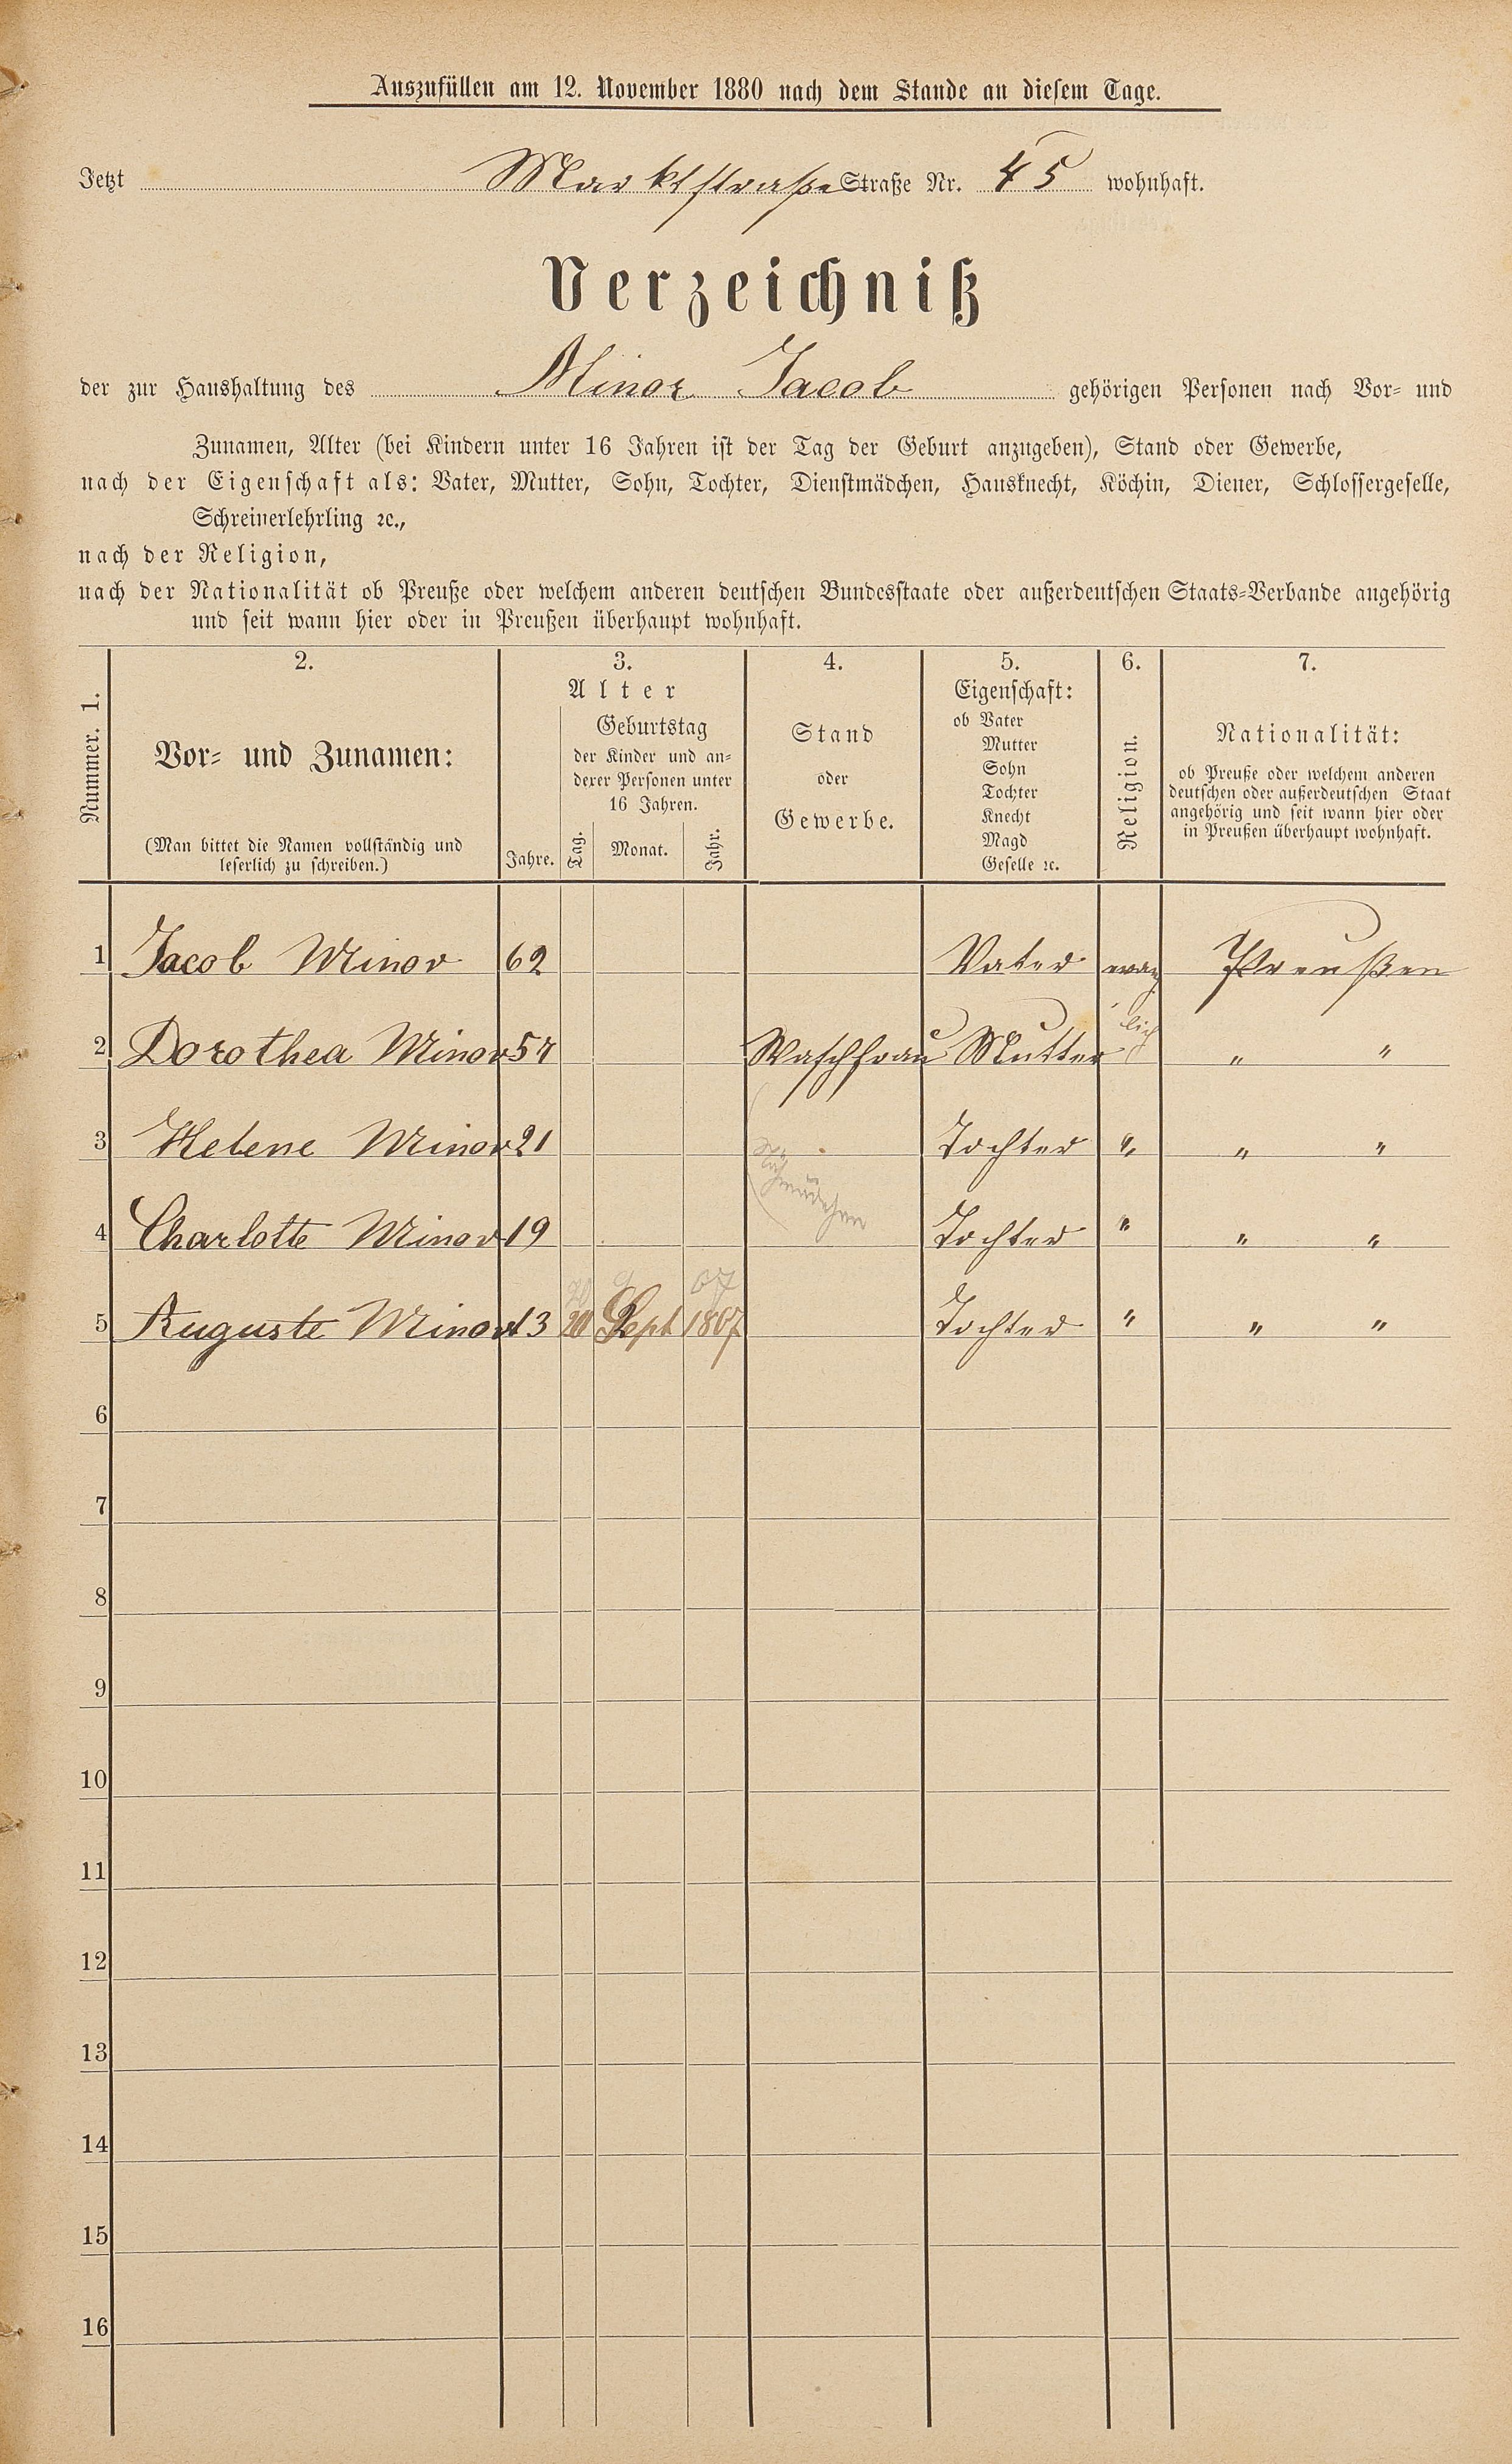 Auszufüllen am 12. November 1880 nach dem Stande an diesem Tage.
Jetzt Marktstraße Straße Nr. 45 wohnhaft.
Verzeichniß
der zur Haushaltung des Minor Jacob gehörigen Personen nach Vor- und
Zunamen, Alter (bei Kindern unter 16 Jahren ist der Tag der Geburt anzugeben), Stand oder Gewerbe,
nach der Eigenschaft als: Vater, Mutter, Sohn, Tochter, Dienstmädchen, Hausknecht, Köchin, Diener, Schlossergeselle,
Schreinerlehrling ꝛc.,
nach der Religion,
nach der Nationalität ob Preuße oder welchem anderen deutschen Bundesstaate oder außerdeutschen Staats-Verbande angehörig
und seit wann hier oder in Preußen überhaupt wohnhaft.
Nummer. 1.
2.
Vor- und Zunamen:
(Man bittet die Namen vollständig und
leserlich zu schreiben.)
3.
Alter
Jahre.
Geburtstag
der Kinder und an-
derer Personen unter
16 Jahren.
Tag. Monat. Jahr.
4.
Stand
oder
Gewerbe.
5.
Eigenschaft:
ob Vater
Mutter
Sohn
Tochter
Knecht
Magd
Geselle ꝛc.
6.
Religion.
7.
Nationalität:
ob Preuße oder welchem anderen
deutschen oder außerdeutschen Staat
angehörig und seit wann hier oder
in Preußen überhaupt wohnhaft.
1 Jacob Minor 62 Vater evang Preußen
2 Dorothea Minor Waschfrau Mutter lich " "
3 Helene Minor 21 Tochter " " "
4 Charlotte Minor 19 Tochter " " "
5 Auguste Minor 13 20 Sept 1867 Tochter " " "
6
7
8
9
10
11
12
13
14
15
16